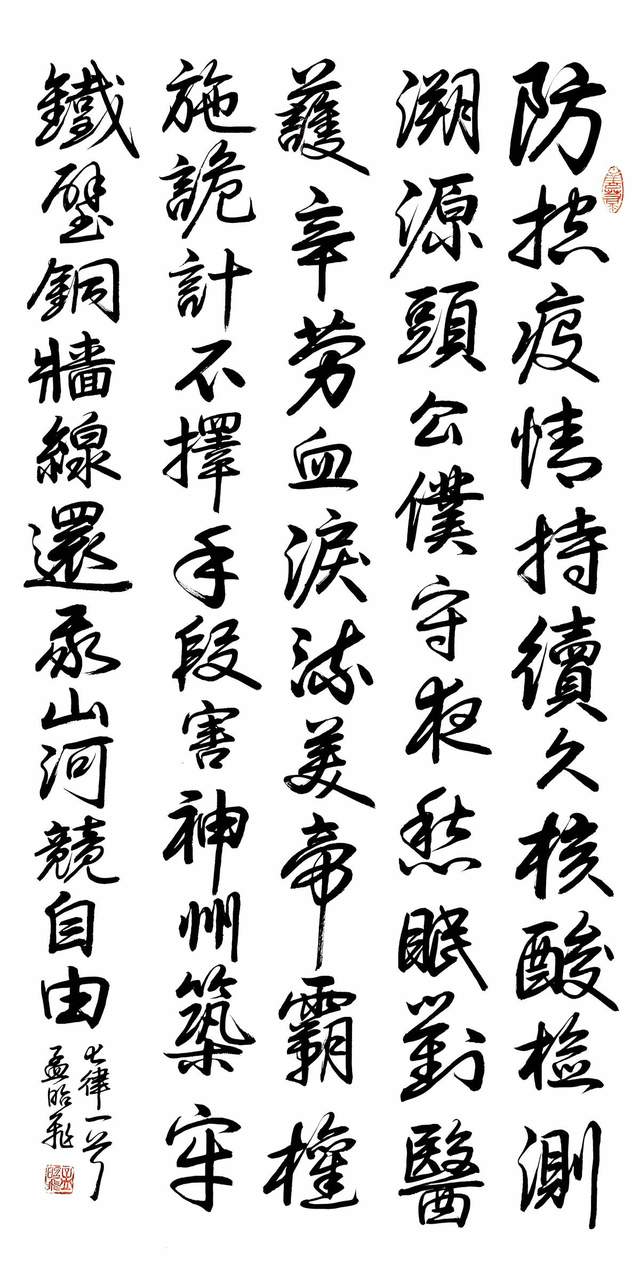 防控疫情持續久核酸检測
溯源頭公僕守夜愁眠對醫
護辛勞血淚流美帝霸權
施詭計不擇手段害神州築牢
鐵壁銅牆線還我山河競自由
七律一首
孟昭